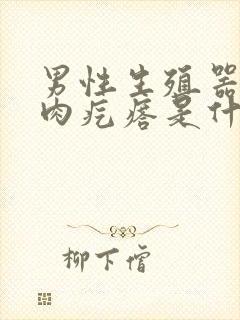 男性生殖器
肉疙瘩是什
柳下僧